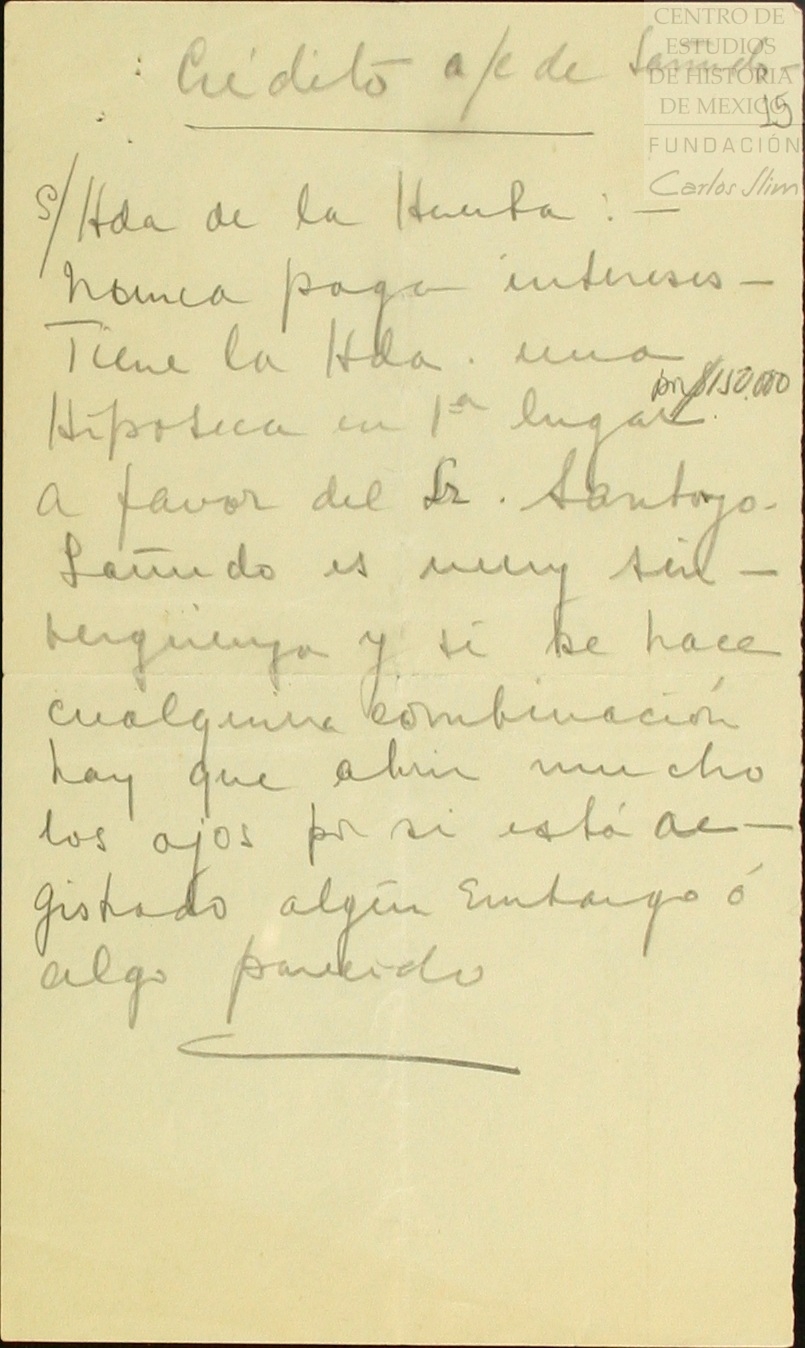 CENTRO DE
ESTUDIOS
DE HISTORIA
DE MEXICO
FUNDACIÓN
Carlos Slim
15
Crédito a/c de Sañudo
s/Hda de la Huerta : —
Nunca paga intereses —
Tiene la Hda. una
por $150.000
Hipoteca en 1ª lugar.
a favor del Sr. Santoyo.
Sañudo es muy sin —
verguenza y si se hace
cualquiera combinación
hay que abrir mucho
los ojos por si está re —
gistrado algún Embargo ó
algo parecido